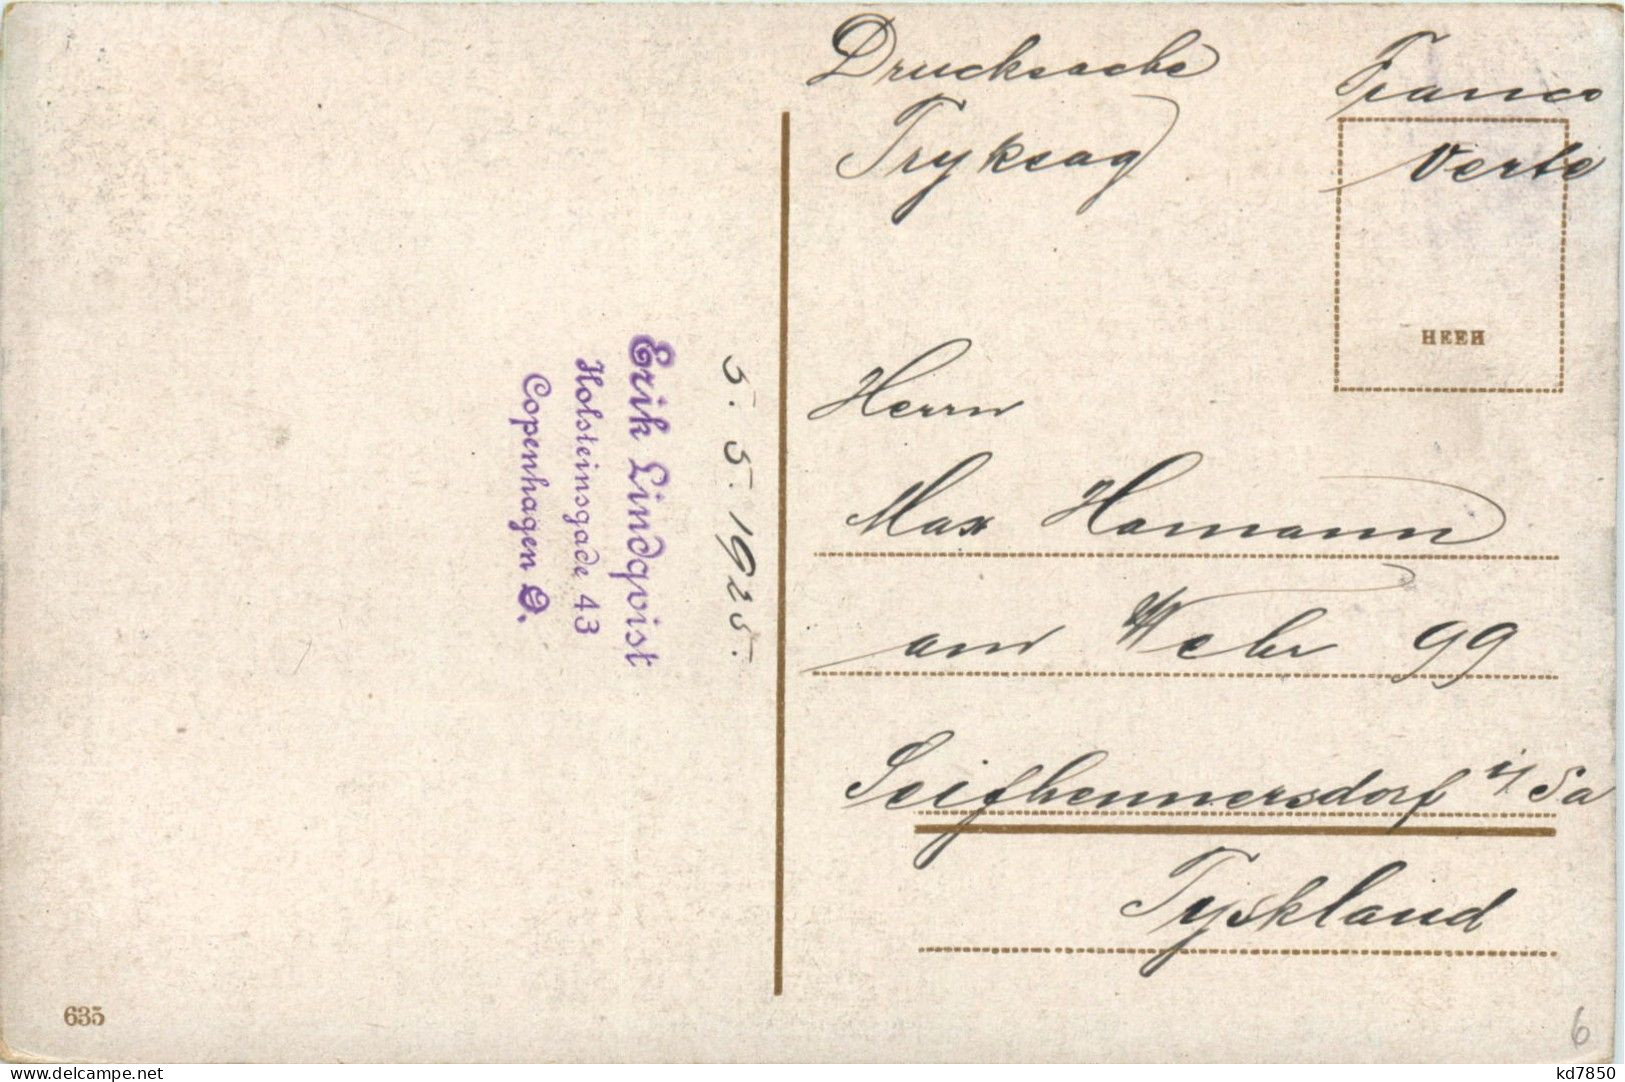 Drucksache
Tryksag
Franco
Verte
HEEH
Erik Lindqvist
Holsteinsgade 43
Copenhagen Ø.
5. 5. 1925.
Herrn
Max Hamann
am Wehr 99
Seifhennersdorf i/Sa
Tyskland
635
6
www.delcampe.net
kd7850